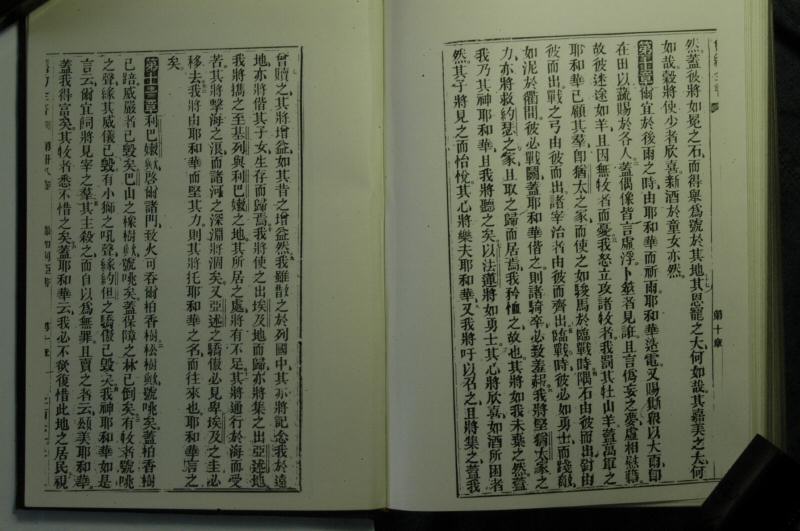 然。蓋彼將如冕之石而得舉爲號於其地其恩寵之大何如哉其嘉美之大何
如哉穀將使少者欣喜新酒於童女亦然。
第十章爾宜於後雨之時由耶和華而祈雨耶和華造電又賜
在田以蔬賜於各人蓋偶像皆言虛浮卜筮者見誑且言僞妄之夢虛相慰藉
故彼迷途如羊且因無牧者而憂我怒立攻諸牧者我罰其牡山羊蓋萬軍之
耶和華已顧其羣卽猶太之家而使之如駿馬於臨戰時隅石由彼而出釘由
彼而出戰之弓由彼而出諸宰治者由彼而齊出臨戰時彼必如勇士而踐敵
如泥於衢間彼必戰鬭蓋耶和華偕之則諸騎卒必致羞赧我將堅猶太家之
力亦將救約瑟之家且取之歸而居焉我矜恤之故也其將如我未棄之然蓋
我乃其神耶和華且我將聽之矣以法蓮將如勇士其心將欣喜如酒所困者
然其子將見之而怡悅其心將樂夫耶和華又我將吁以召之且將集之蓋我
曾贖之其將增益如其昔之增益然我雖散之於列國中其亦將記念我於遠
地亦將偕其子女生存而歸焉我將使之出埃及地而歸亦將集之出亞述地
我將攜之至基列與利巴嫩之地其所居之處將有不足其將通行於海而受
苦其將擊海之浪而諸河之深淵將涸矣又亞述之驕傲必見卑埃及之圭必
移去我將由耶和華而堅其力則其將托耶和華之名而往來也耶和華言之
矣。
第十一章利巴嫩歟啓爾諸門致火可吞爾柏香樹松樹歟號咷矣蓋柏香樹
已踣威嚴者已毀矣巴山之橡樹歟號咷矣蓋保障之林已倒矣有牧者號咷
之聲緣其威儀已毀有小獅之吼聲緣約但之驕傲已毀矣我神耶和華如是
言云爾宜飼將見宰之羣其主殺之而自以爲無罪且賣之者云頌美耶和華
蓋我得富矣其牧者悉不惜之矣蓋耶和華云我必不復惜此地之居民視
第十章